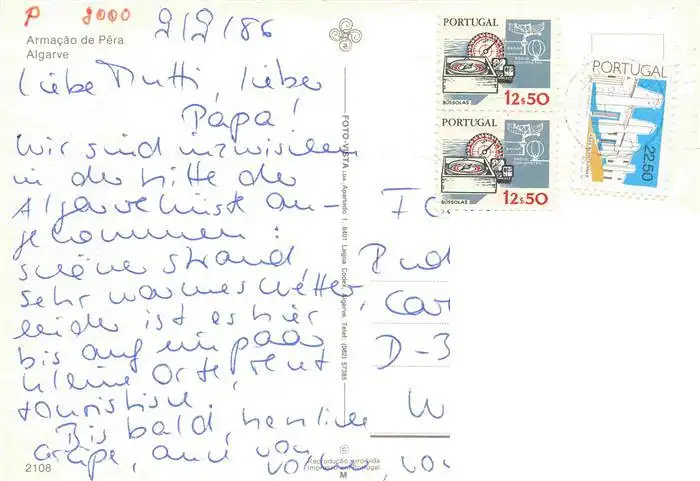 P 2000 2/2/86
Armação de Pêra
Algarve
Liebe Mutti, lieber
Papa!
Wir sind inzwischen
in der Mitte der
Algarveküste an-
gekommen:
schöner Strand,
sehr warmes Wetter,
leider ist es hier
bis auf ein paar
kleine Orte, sehr
touristisch.
Bis bald, herzliche
Grüße, auch von
2108
FOTO-VISTA Lda. Apartado 1, 8401 Lagoa Codex, Algarve, Telef. (082) 57385
Reprodução proibida
Impresso em Portugal
M
PORTUGAL
BÚSSOLAS
12$50
PORTUGAL
BÚSSOLAS
12$50
PORTUGAL
22.50
D-3